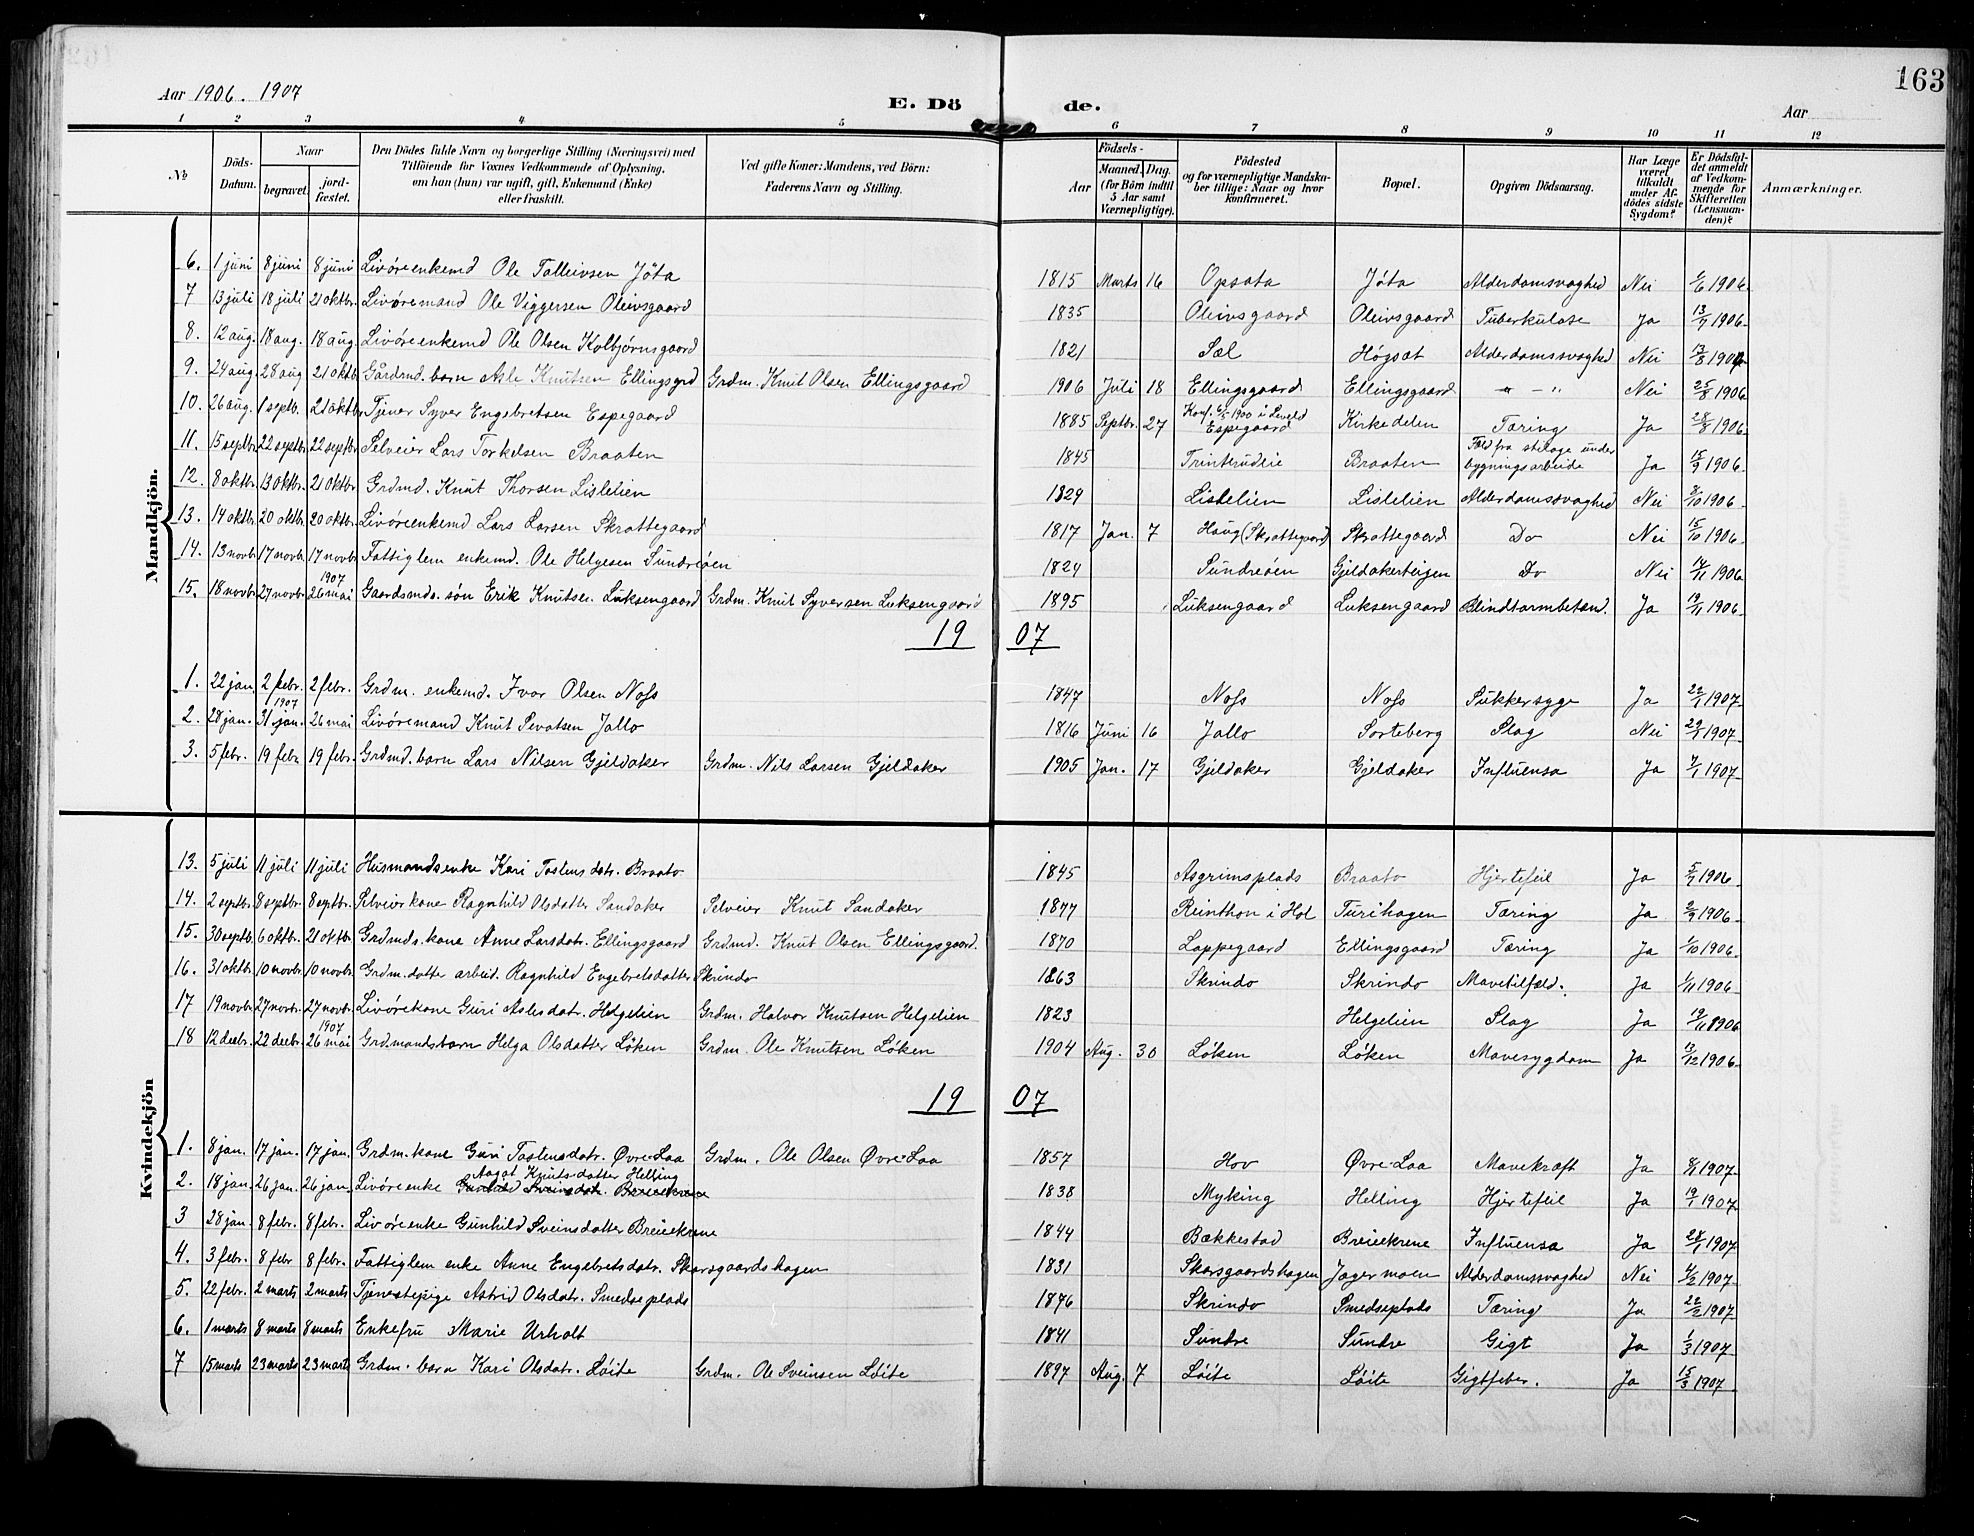 163
Aar 1906. 1907
E. Dö de.
Aar
1 2 3 4 5 6 7 8 9 10 11 12
№ | Döds-Datum. | Naar begravet. | jord-fæstet. | Den Dödes fulde Navn og borgerlige Stilling (Næringsvei) med Tilföiende for Voxnes Vedkommende af Oplysning, om han (hun) var ugift, gift, Enkemand (Enke) eller fraskilt. | Ved gifte Koner: Mandens, ved Börn: Faderens Navn og Stilling. | Födsels- Aar | Maaned. Dag. (for Börn indtil 5 Aar samt Værnepligtige). | Födested og for værnepligtige Mandskaber tillige: Naar og hvor konfirmeret. | Bopæl. | Opgiven Dödsaarsag. | Har Læge været tilkaldt under Afdödes sidste Sygdom? | Er Dödsfaldet anmeldt af Vedkommende for Skifteretten (Lensmanden)? | Anmærkninger.
Mandkjön.
6. 1 juni 8 juni 8 juni Livøreenkemd Ole Tolleivsen Jöta 1815 Marts 16 Opsata Jöta Alderdomsvaghed Nei 5/6 1906
7 13 juli 18 juli 21 oktbr. Livøremand Ole Viggersen Oleivsgaard 1835 Oleivsgaard Oleivsgaard Tuberkulose Ja 13/7 1906
8. 12 aug. 18 aug. 18 aug. Livøreenkemd Ole Olsen Kolbjørnsgaard 1821 Sæl Högsæt Alderdomssvaghed Nei 13/8 1906
9. 24 aug. 28 aug 21 oktb. Gårdmd. barn Asle Knutsen Ellingsgrd Grdm. Knut Olsen Ellingsgaard 1906 Juli 18 Ellingsgaard Ellingsgaard " - " Nei 25/8 1906
10. 26 aug. 1 septb. 21 oktbr. Tjener Syver Engebretsen Espegaard 1885 Septbr. 27 Konf. 6/5 1900 i Leveld Espegaard Kirkedelen Tæring Ja 28/8 1906
11. 15 septbr. 22 septbr 22 septbr Selveier Lars Torkelsen Braaten 1845 Trinterudeie Braaten Fald fra stilage under bygningsarbeide Ja 15/9 1906
12. 8 oktbr. 13 oktbr. 21 oktbr. Grdmd. Knut Thorsen Lislelien 1829 Lislelien Lislelien Alderdomssvaghed Nei 8/10 1906
13. 14 oktbr. 20 oktbr. 20 oktbr. Livøreenkemd Lars Larsen Skrattegaard 1817 Jan. 7 Haug (Skrattegaard) Skrattegaard Do Nei 15/10 1906
14. 13 novbr. 17 novbr. 17 novbr. Fattiglem enkemd. Ole Helgesen Sundreöen 1824 Sundreöen Gjeldakerteigen Do Nei 14/11 1906
1907
15. 18 novbr. 27 novbr. 26 mai Gaardsmds. søn Erik Knutsen Luksengaard Grdm. Knut Syversen Luksengaard 1895 Luksengaard Luksengaard Blindtarmbetænd. Ja 19/11 1906
19 07
1. 22 jan. 2 febr. 2 febr. Grdm. enkemd. Ivar Olsen Noss 1847 Noss Noss Sukkersyge Ja 22/1 1907
1907
2. 28 jan. 31 jan. 26 mai Livøremand Knut Sevatsen Jallo 1816 Juni 16 Jallo Sorteberg Slag Nei 29/1 1907
3. 5 febr. 19 febr. 19 febr. Grdmd. barn Lars Nilsen Gjeldaker Grdm. Nils Larsen Gjeldaker 1905 Jan. 17 Gjeldaker Gjeldaker Influensa Ja 7/1 1907
Kvindekjön
13. 5 juli 11 juli 11 juli Husmandsenke Kari Tostensdatr. Braato 1845 Asgrimsplads Braato Hjertefeil Ja 5/7 1906
14. 2 septbr. 8 septbr. 8 septbr. Selveierkone Ragnhild Olsdatter Sandaker Selveier Knut Sandaker 1877 Reinthon i Hol Turihagen Tæring Ja 2/9 1906
15. 30 septb. 6 oktbr. 21 oktbr. Grdmds. kone Anne Larsdatr. Ellingsgaard Grdmd. Knut Olsen Ellingsgaard. 1870 Loppegaard Ellingsgaard Tæring Ja 1/10 1906
16. 31 oktb. 10 novbr. 10 novbr. Grdm. datter arbeid. Ragnhild Engebretsdatter Skrindo 1863 Skrindo Skrindo Mavetilfæld. Ja 1/11 1906
17 19 novbr. 27 novbr. 27 novbr. Livörekone Guri Aslesdatr. Helgelien Grdm. Halvor Knutsen Helgelien 1823 Helgelien Slag Ja 19/11 1906
1907
18 12 decbr. 22 decbr. 26 mai Grdmandsbarn Helga Olsdatter Löken Grdm. Ole Knutsen Löken 1904 Aug. 30 Löken Löken Mavesygdom Ja 13/12 1906
19 07
1. 8 jan. 17 jan. 17 jan. Grdm. kone Guri Tostensdatr. Øvre-Laa Grdm. Ole Olsen Øvre-Laa 1857 Hov Øvre-Laa Mavekræft Ja 8/1 1907
Aagot Knutsdatter Helling
2. 18 jan. 26 jan. 26 jan. Livöreenke Gunhild Sveinsdatr. Breiekrene 1838 Myking Helling Hjertefeil Ja 19/1 1907
3 28 jan. 8 febr. 8 febr. Livöreenke Gunhild Sveinsdatter Breiekrene 1844 Bækkestad Breiekrene Influensa Ja 28/1 1907
4. 3 febr. 8 febr 8 febr. Fattiglem enke Anne Engebretsdatr. Skarsgaardshagen 1831 Skarsgaardshagen Jagermoen Alderdomssvaghed Nei 4/2 1907
5. 22 febr. 2 marts 2 marts Tjenestepige Astrid Olsdatr. Smedseplads 1876 Skrindo Smedseplads Tæring Ja 22/2 1907
6. 1 marts 8 marts 8 marts Enkefru Marie Urholt 1841 Sundre Sundre Gigt Ja 1/3 1907
7 15 marts 23 marts 23 marts Grdm. barn Kari Olsdatr. Löite Grdm. Ole Sveinsen Löite 1897 Aug. 7 Löite Löite Gigtfeber. Ja 15/3 1907